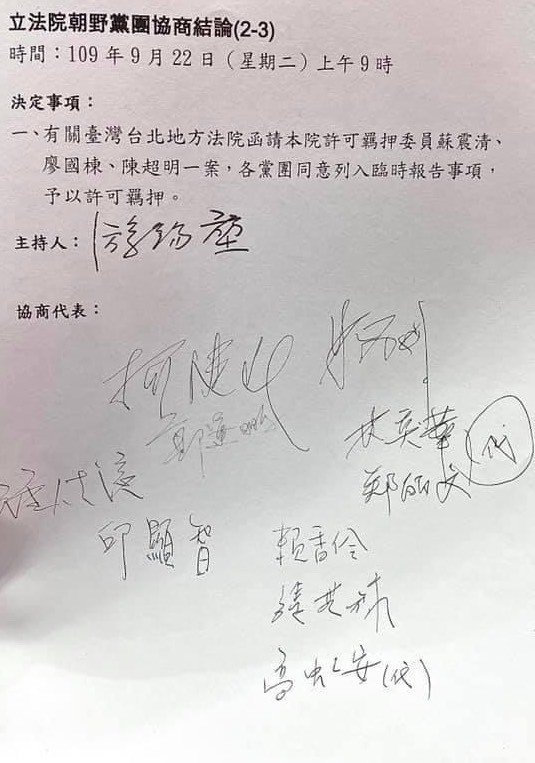 立法院朝野黨團協商結論(2-3)
時間：109 年 9 月 22 日（星期二）上午 9 時
決定事項：
一、有關臺灣台北地方法院函請本院許可羈押委員蘇震清、
廖國棟、陳超明一案，各黨團同意列入臨時報告事項，
予以許可羈押。
主持人：游錫堃
協商代表：
柯建銘
鄭運鵬
林奕華 代
鄭麗文
邱顯智
賴香伶
張其祿
高虹安(代)